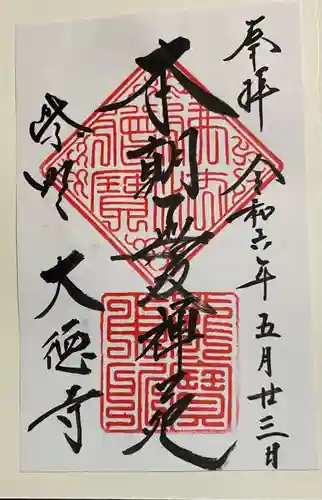 奉拝 令和六年五月廿三日
本朝無雙禅苑
紫野 大徳寺